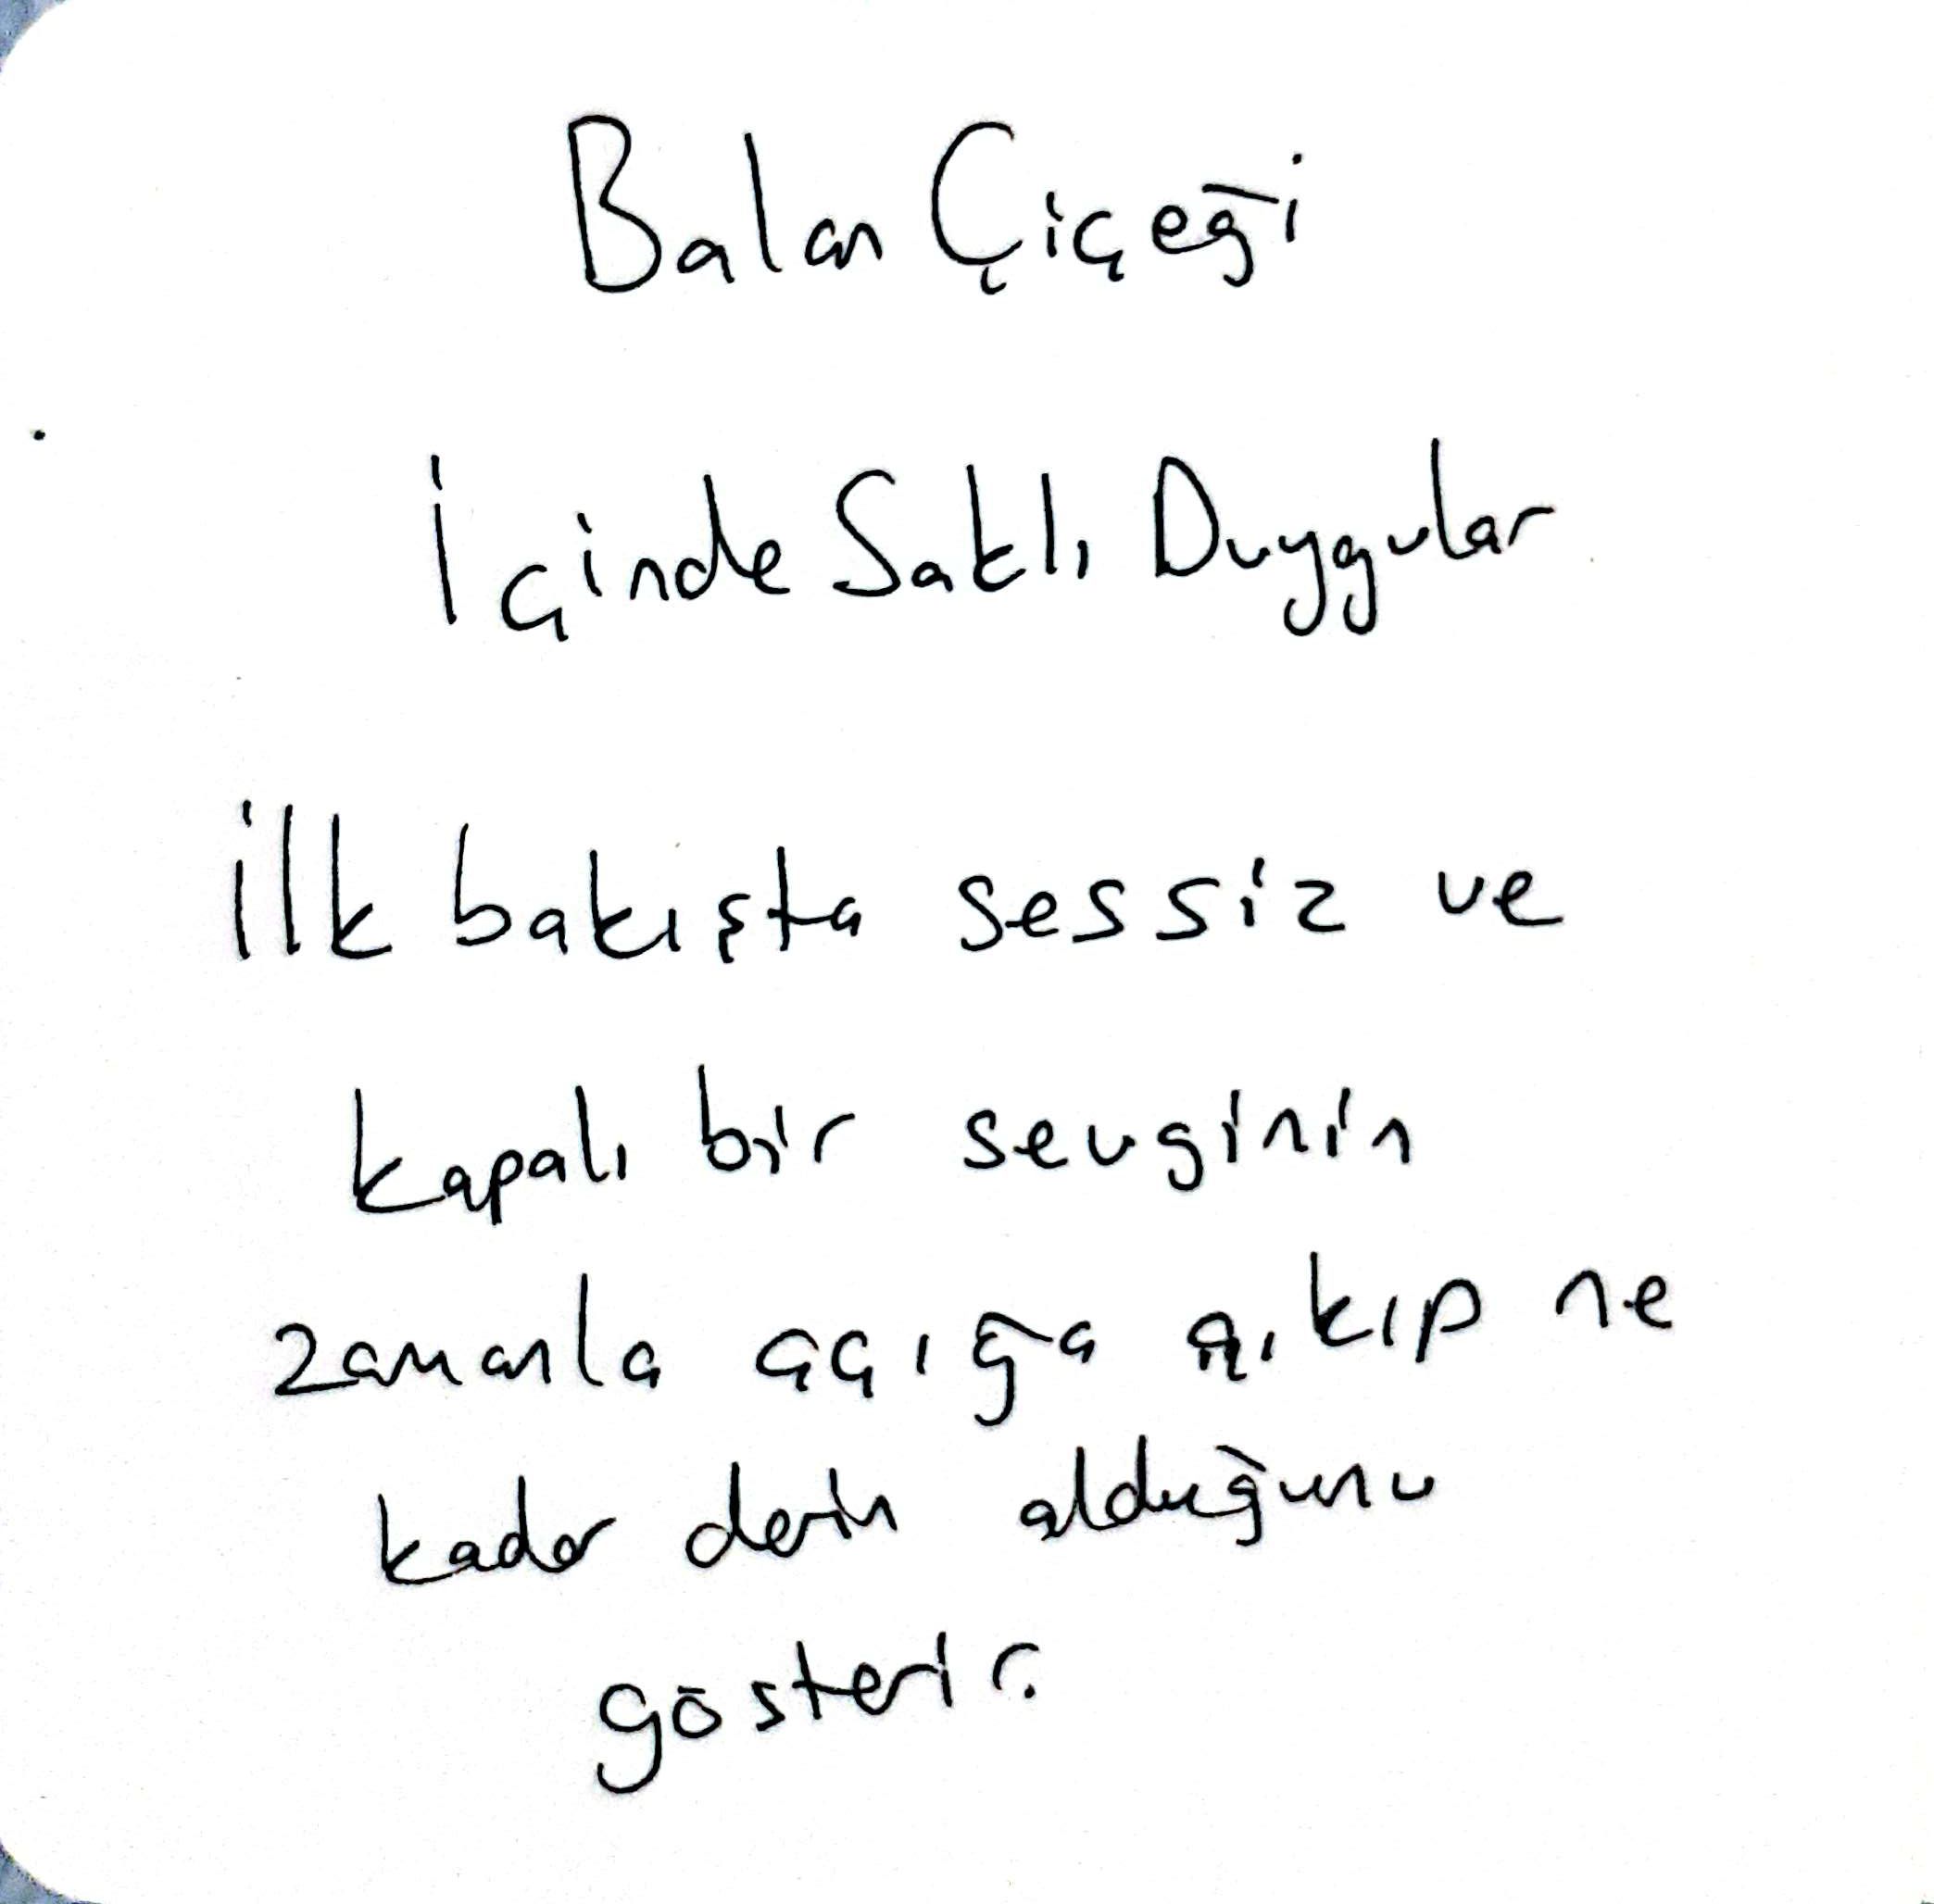 Balon Çiçeği
İçinde Saklı Duygular
ilk bakışta sessiz ve
kapalı bir sevginin
zamanla açığa çıkıp ne
kadar derin olduğunu
gösterir.